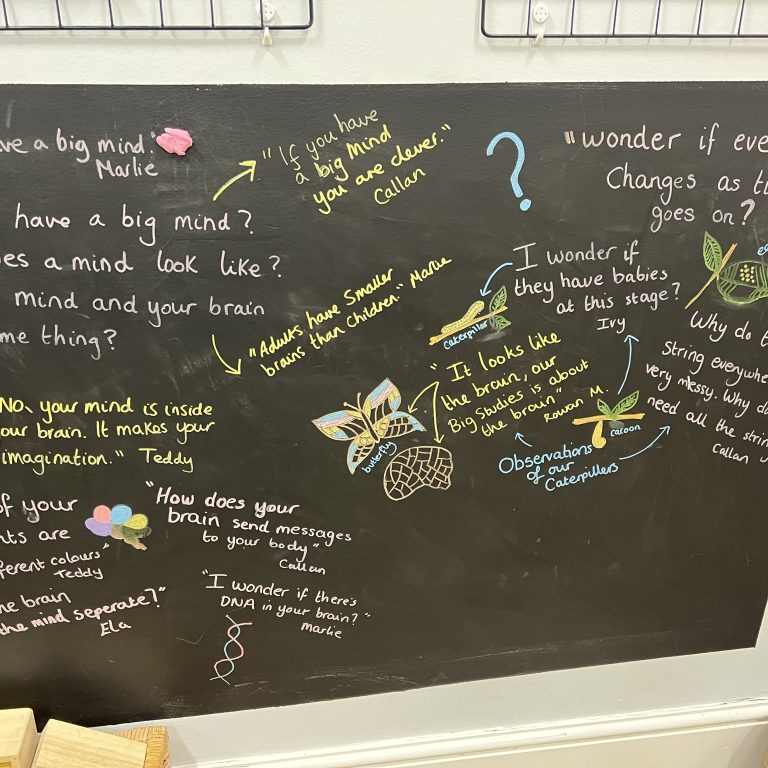 ve a big mind."
Marlie
"If you have
a big mind
you are clever."
Callan
?
"wonder if eve
Changes as t
goes on?
have a big mind?
es a mind look like?
mind and your brain
me thing?
"Adults have Smaller
brains than Children." Marlie
I wonder if
they have babies
at this stage?
Ivy
caterpillar
Why do t
String everywhe
very messy. Why do
need all the strin
Callan
"It looks like
the brain, our
Big Studies is about
the brain"
Rowan M.
butterfly
cacoon
Observations
of our
Caterpillers
No, your mind is inside
our brain. It makes your
imagination." Teddy
of your
ts are
ferent colours"
Teddy
"How does your
brain send messages
to your body"
Callan
he brain
the mind seperate?"
Ela
"I wonder if there's
DNA in your brain?"
Marlie